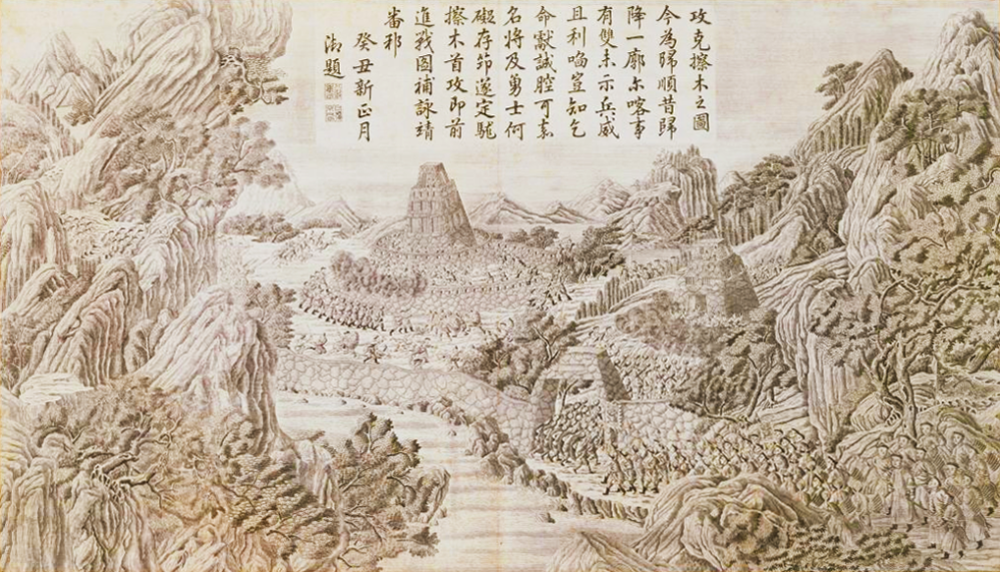 攻克擦木之圖
今為歸順昔歸
降一廓尔喀事
有雙未示兵威
且利啗豈知乞
命獻誠腔可嘉
名将及勇士何
礙存遂定駹
擦木首攻即前
進戰圖補詠靖
畨邦
癸丑新正月
御題